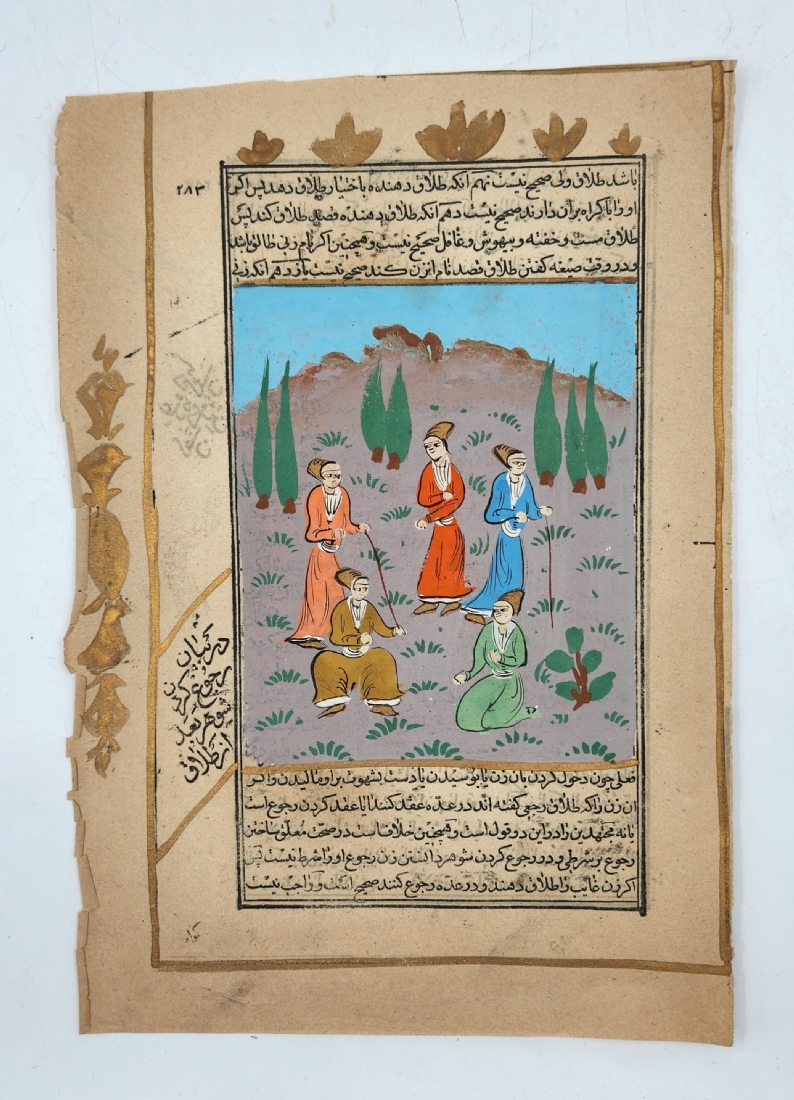 ٢٨٣
باشد طلاق ولی صحیح نیست نهم آنکه طلاق دهنده باختیار طلاق دهد پس اگر
او را باکراه بران دارند صحیح نیست دهم آنکه طلاق دهنده قصد طلاق کند پس
طلاق مست و خفته و بیهوش و غافل صحیح نیست و همچنین اگر نام زنی طالق باشد
و در وقت صیغه گفتن طلاق قصد نام آن زن کند صحیح نیست یازدهم آنکه زنی
در بیان
رجوع کردن
شوهر بعد
از طلاق
فعلی چون دخول کردن بان زن یا بوسیدن یا دست بشهوت براو مالیدن و اگر
ان زن را که طلاق رجعی گفته اند در عده عقد کنند ایا عقد کردن رجوع است
یا نه مجتهدین را در این دو قول است و همچنین خلافست در صحت معلق ساختن
رجوع بر شرطی و در رجوع کردن شوهر دانستن زن رجوع او را شرط نیست پس
اگر زن غایب را طلاق دهند و در عده رجوع کنند صحیح است و واجب نیست
گواه